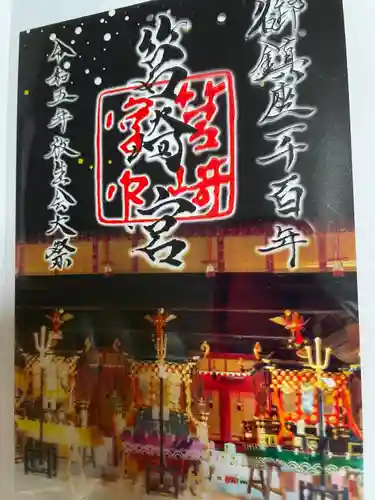 御鎮座一千百年
筥崎宮
筥崎
宮印
令和五年放生会大祭